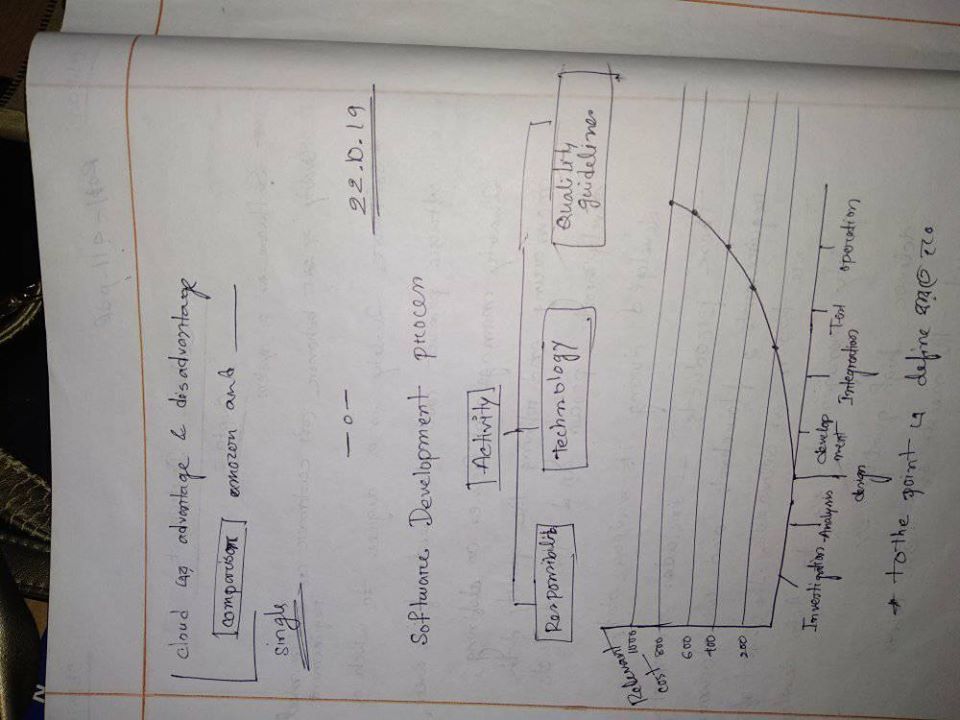 cloud এর advantage & disadvantage
comparison amazon and
single
—o—
22.10.19
Software Development process
Activity
Responsibility
Technology
Quality
guidelines
Relevant
cost
1000
800
600
400
200
Investigation
Analysis
design
develop
ment
Integration
Test
operation
to the point এ define করতে হবে